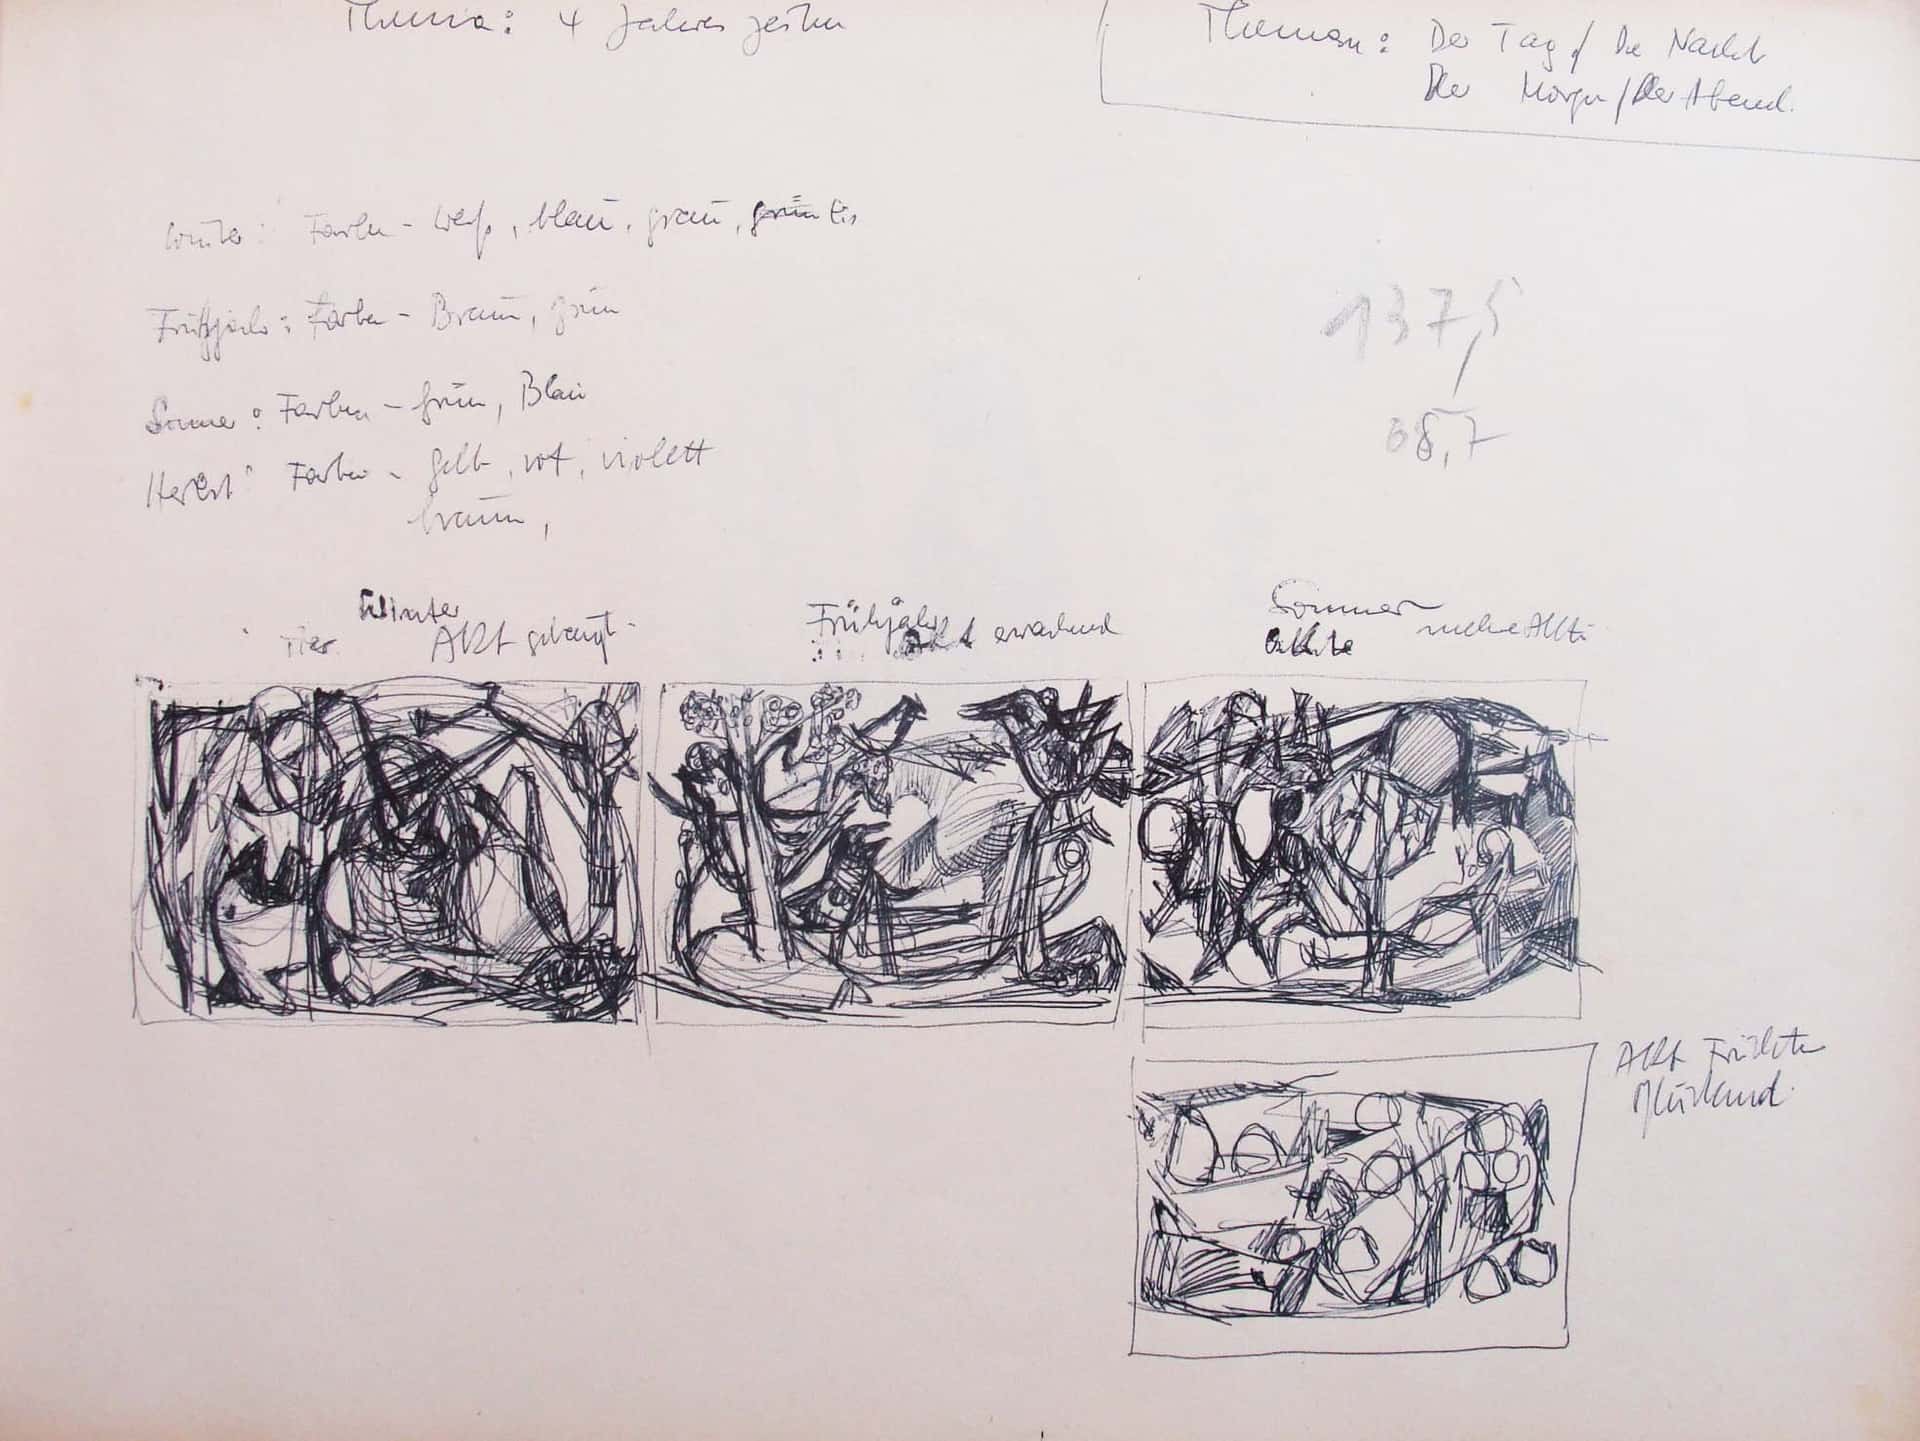 Thema: 4 Jahreszeiten
Themen: Der Tag / Die Nacht
Der Morgen / Der Abend.
Winter: Farben - weiß, blau, grau, grün Eis
Frühjahr: Farben - Braun, grün
Sommer: Farben - grün, Blau
Herbst: Farben - gelb, rot, violett
braun,
137,5
Winter
Akt gebeugt
Frühjahr
Akt erwachend
Sommer
Akte mehre Akte
Akt Früchte